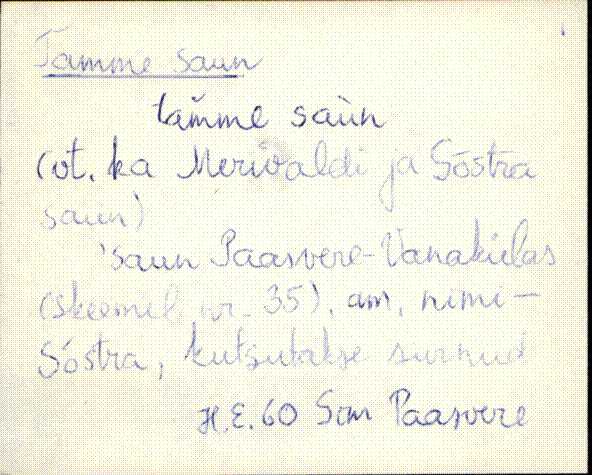 Tamme saun
tam̆me saùn
(vt. ka Meriwaldi ja Sõstra
saun)
'saun Paasvere-Vanakülas
(skeemil nr. 35), am. nimi -
Sõstra, kutsutakse surnud
H.E. 60 Sim Paasvere